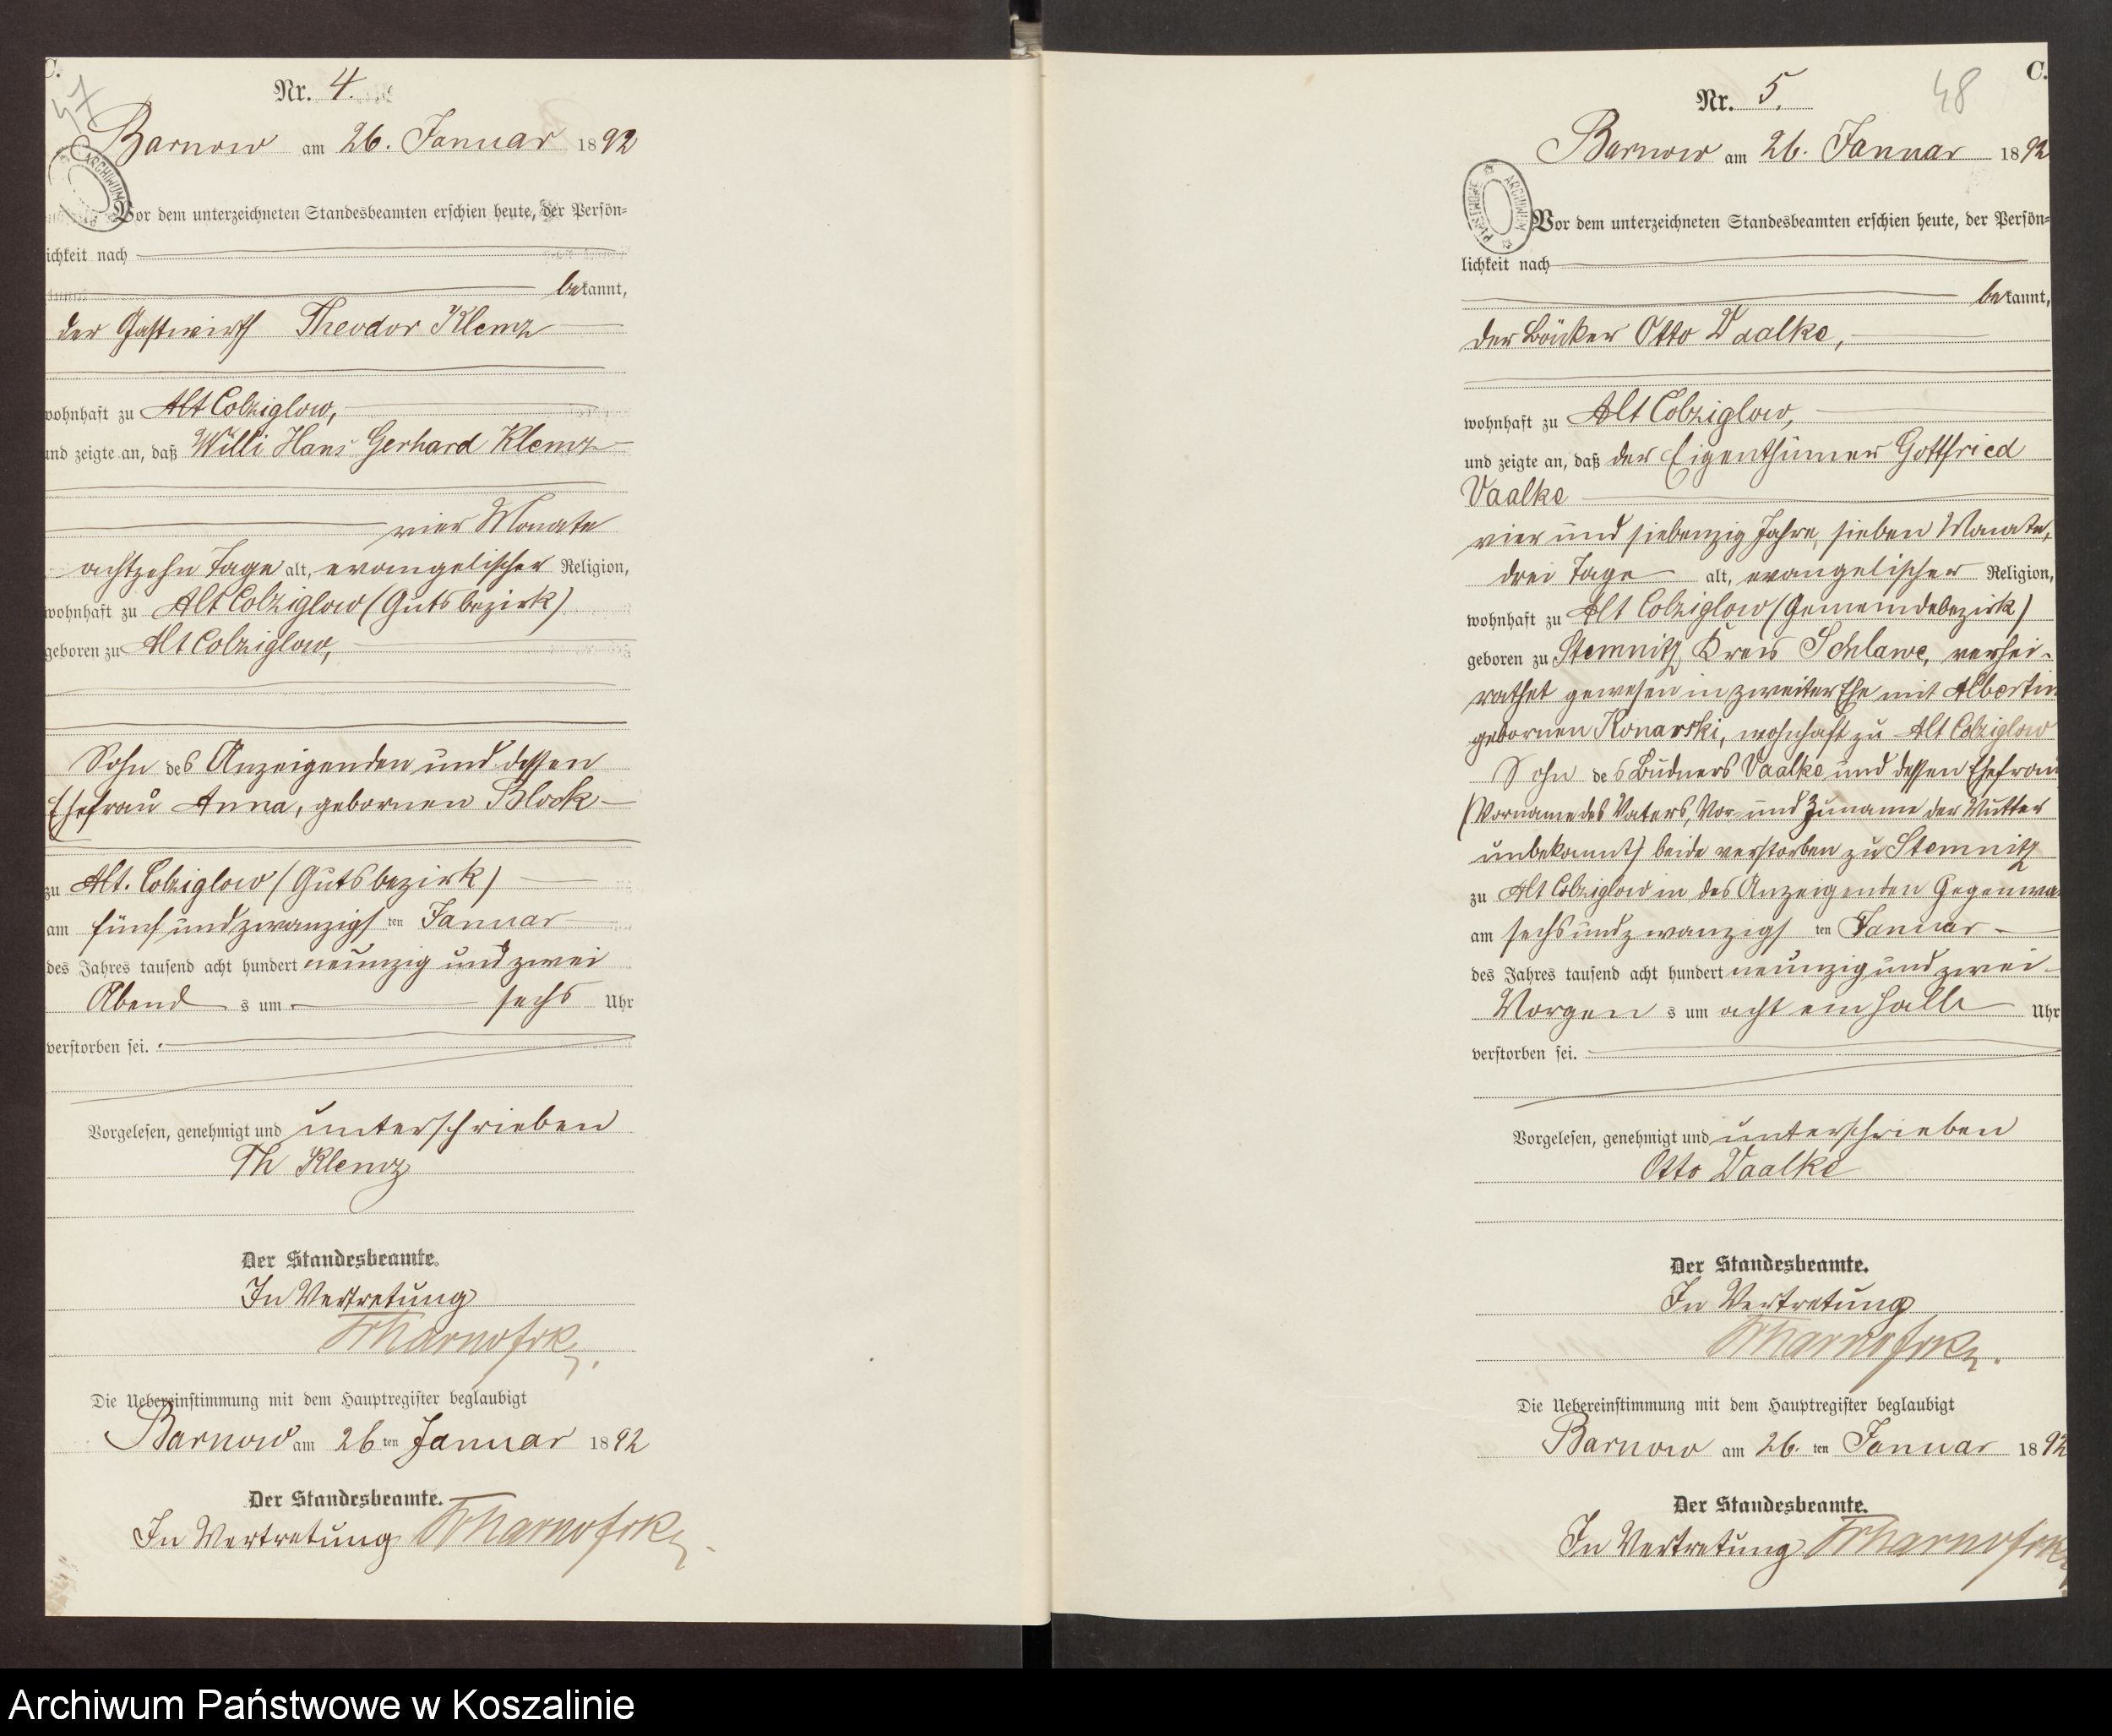 C.
47
Nr. 4.
Barnow am 26. Januar 1892
ARCHIWUM
Vor dem unterzeichneten Standesbeamten erschien heute, der Persön=
lichkeit nach
bekannt,
der Gastwirth Theodor Klemz
wohnhaft zu Alt Colziglow,
und zeigte an, daß Willi Hans Gerhard Klemz
vier Monate
achtzehn Tage alt, evangelischer Religion,
wohnhaft zu Alt Colziglow (Gutsbezirk)
geboren zu Alt Colziglow,
Sohn des Anzeigenden und dessen
Ehefrau Anna, gebornen Block
zu Alt. Colziglow (Gutsbezirk)
am fünfundzwanzigsten Januar
des Jahres tausend acht hundert neunzig und zwei
Abends um sechs Uhr
verstorben sei.
Vorgelesen, genehmigt und unterschrieben
Th Klemz
Der Standesbeamte.
In Vertretung
Die Uebereinstimmung mit dem Hauptregister beglaubigt
Barnow am 26ten Januar 1892
Der Standesbeamte.
In Vertretung
C.
48
Nr. 5.
Barnow am 26. Januar 1892
ARCHIWUM PAŃSTWOWE
Vor dem unterzeichneten Standesbeamten erschien heute, der Persön=
lichkeit nach
bekannt,
der Bäcker Otto Vaalke,
wohnhaft zu Alt Colziglow,
und zeigte an, daß der Eigenthümer Gottfried
Vaalke
vier und siebenzig Jahre, sieben Monate,
drei Tage alt, evangelischer Religion,
wohnhaft zu Alt Colziglow (Gemeindebezirk)
geboren zu Stemnitz Kreis Schlawe, verhei-
rathet gewesen in zweiter Ehe mit Albertin
gebornen Konarski, wohnhaft zu Alt Colziglow
Sohn des Büdners Vaalke und dessen Ehefrau
(Vorname des Vaters, Vor- und Zuname der Mutter
unbekannt) beide verstorben zu Stemnitz
zu Alt Colziglow in des Anzeigenden Gegenwa
am sechsundzwanzigsten Januar
des Jahres tausend acht hundert neunzig und zwei
Morgens um acht ein halb Uhr
verstorben sei.
Vorgelesen, genehmigt und unterschrieben
Otto Vaalke
Der Standesbeamte.
In Vertretung
Die Uebereinstimmung mit dem Hauptregister beglaubigt
Barnow am 26.ten Januar 1892
Der Standesbeamte.
In Vertretung
Archiwum Państwowe w Koszalinie